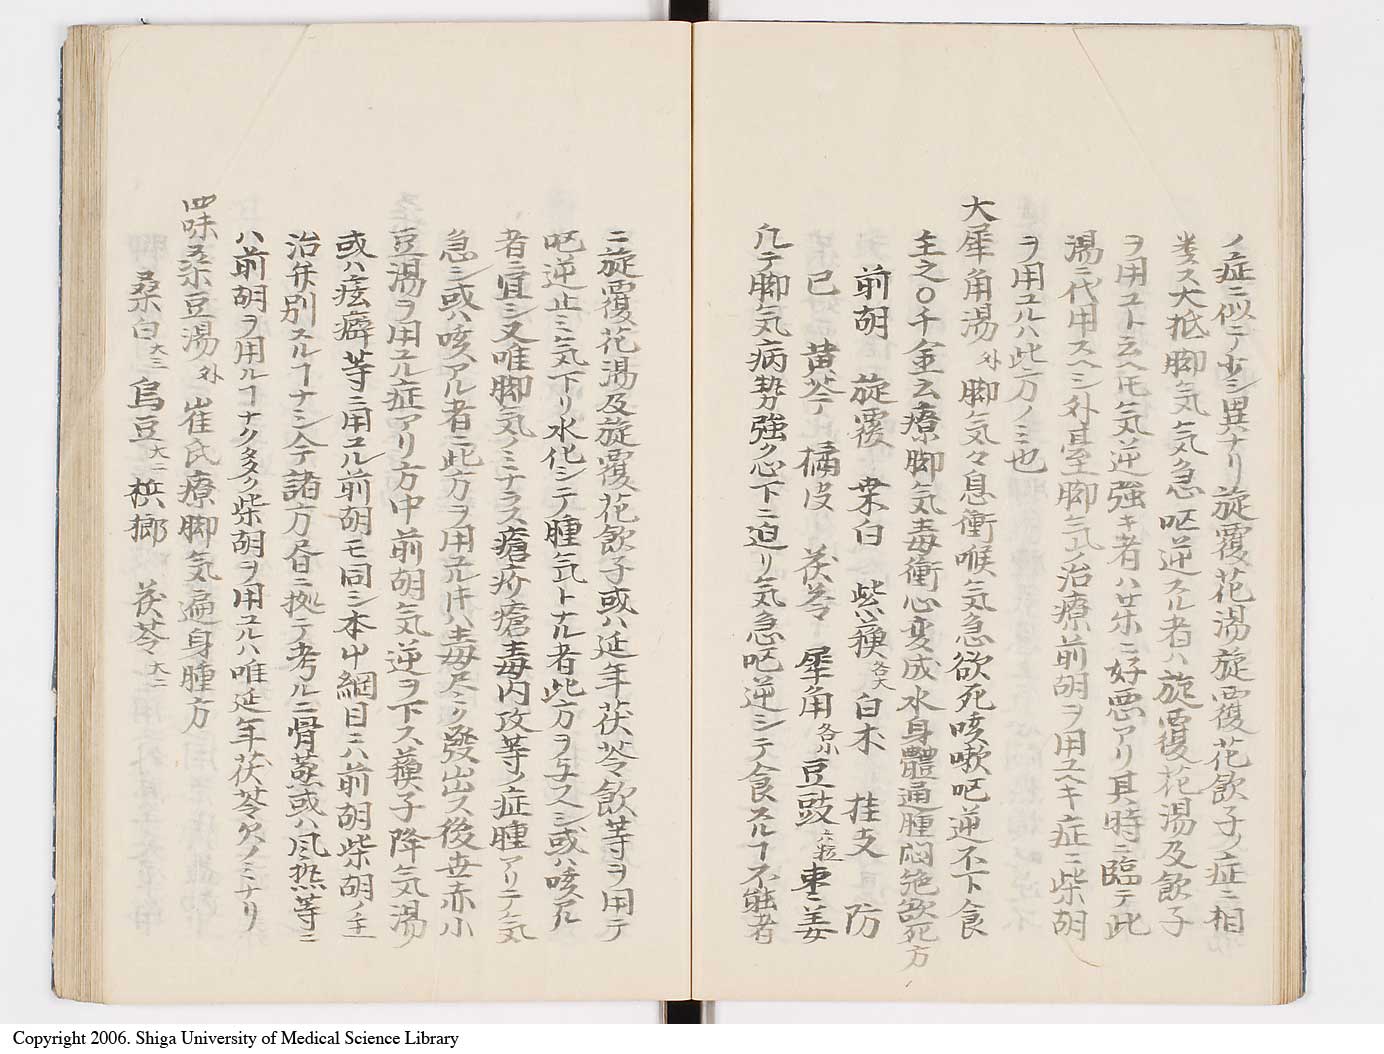 ノ症ニ似テ少シ異ナリ旋覆花湯旋覆花飲子ノ症ニ相
類ス大抵脚気気急呕逆スル者ハ旋覆花湯及飲子
ヲ用ユト云ヘ𪜈気逆強キ者ハ柴ニ好悪アリ其時ニ臨テ此
湯ニ代用スヘシ外䑓脚気ノ治療前胡ヲ用ユヘキ症ニ柴胡
ヲ用ユルハ此方ノミ也
大犀角湯 外 脚気々息衝喉気急欲死咳嗽呕逆不下食
主之〇千金云療脚気毒衝心変成水身體通腫悶絶欲死方
前胡 旋覆 桒白 紫癭 各大 白木 桂支 防
已 黄芩 橘皮 茯苓 犀角 各小 豆豉 六粒 棗 姜
凡テ脚気病勢強ク心下ニ迫リ気急呕逆シテ食スルヿ不能者
ニ旋覆花湯及旋覆花飲子或ハ延年茯苓飲等ヲ用テ
呕逆止ミ気下リ水化シテ腫気トナル者此方ヲ与スヘシ或ハ咳スル
者ニ宜シ又唯脚気ノミナラス瘡疥瘡毒内攻等ノ症腫アリテ気
急シ或ハ咳アル者ニ此方ヲ用ユル𪜈ハ毒尽ク発出ス後世赤小
豆湯ヲ用ユル症アリ方中前胡気逆ヲ下ス蘓子降気湯
或ハ痃癖等ニ用ユル前胡モ同シ本艸綱目ニハ前胡柴胡ノ主
治弁別スルヿナシ今諸方昏ニ拠テ考ルニ骨蒸或ハ風熱等ニ
ハ前胡ヲ用ルヿナク多ク柴胡ヲ用ユルハ唯延年茯苓飲ノミナリ
四味桒豆湯 外 崔氏療脚気遍身腫方
桑白 大三 烏豆 大二 梹榔 茯苓 大二